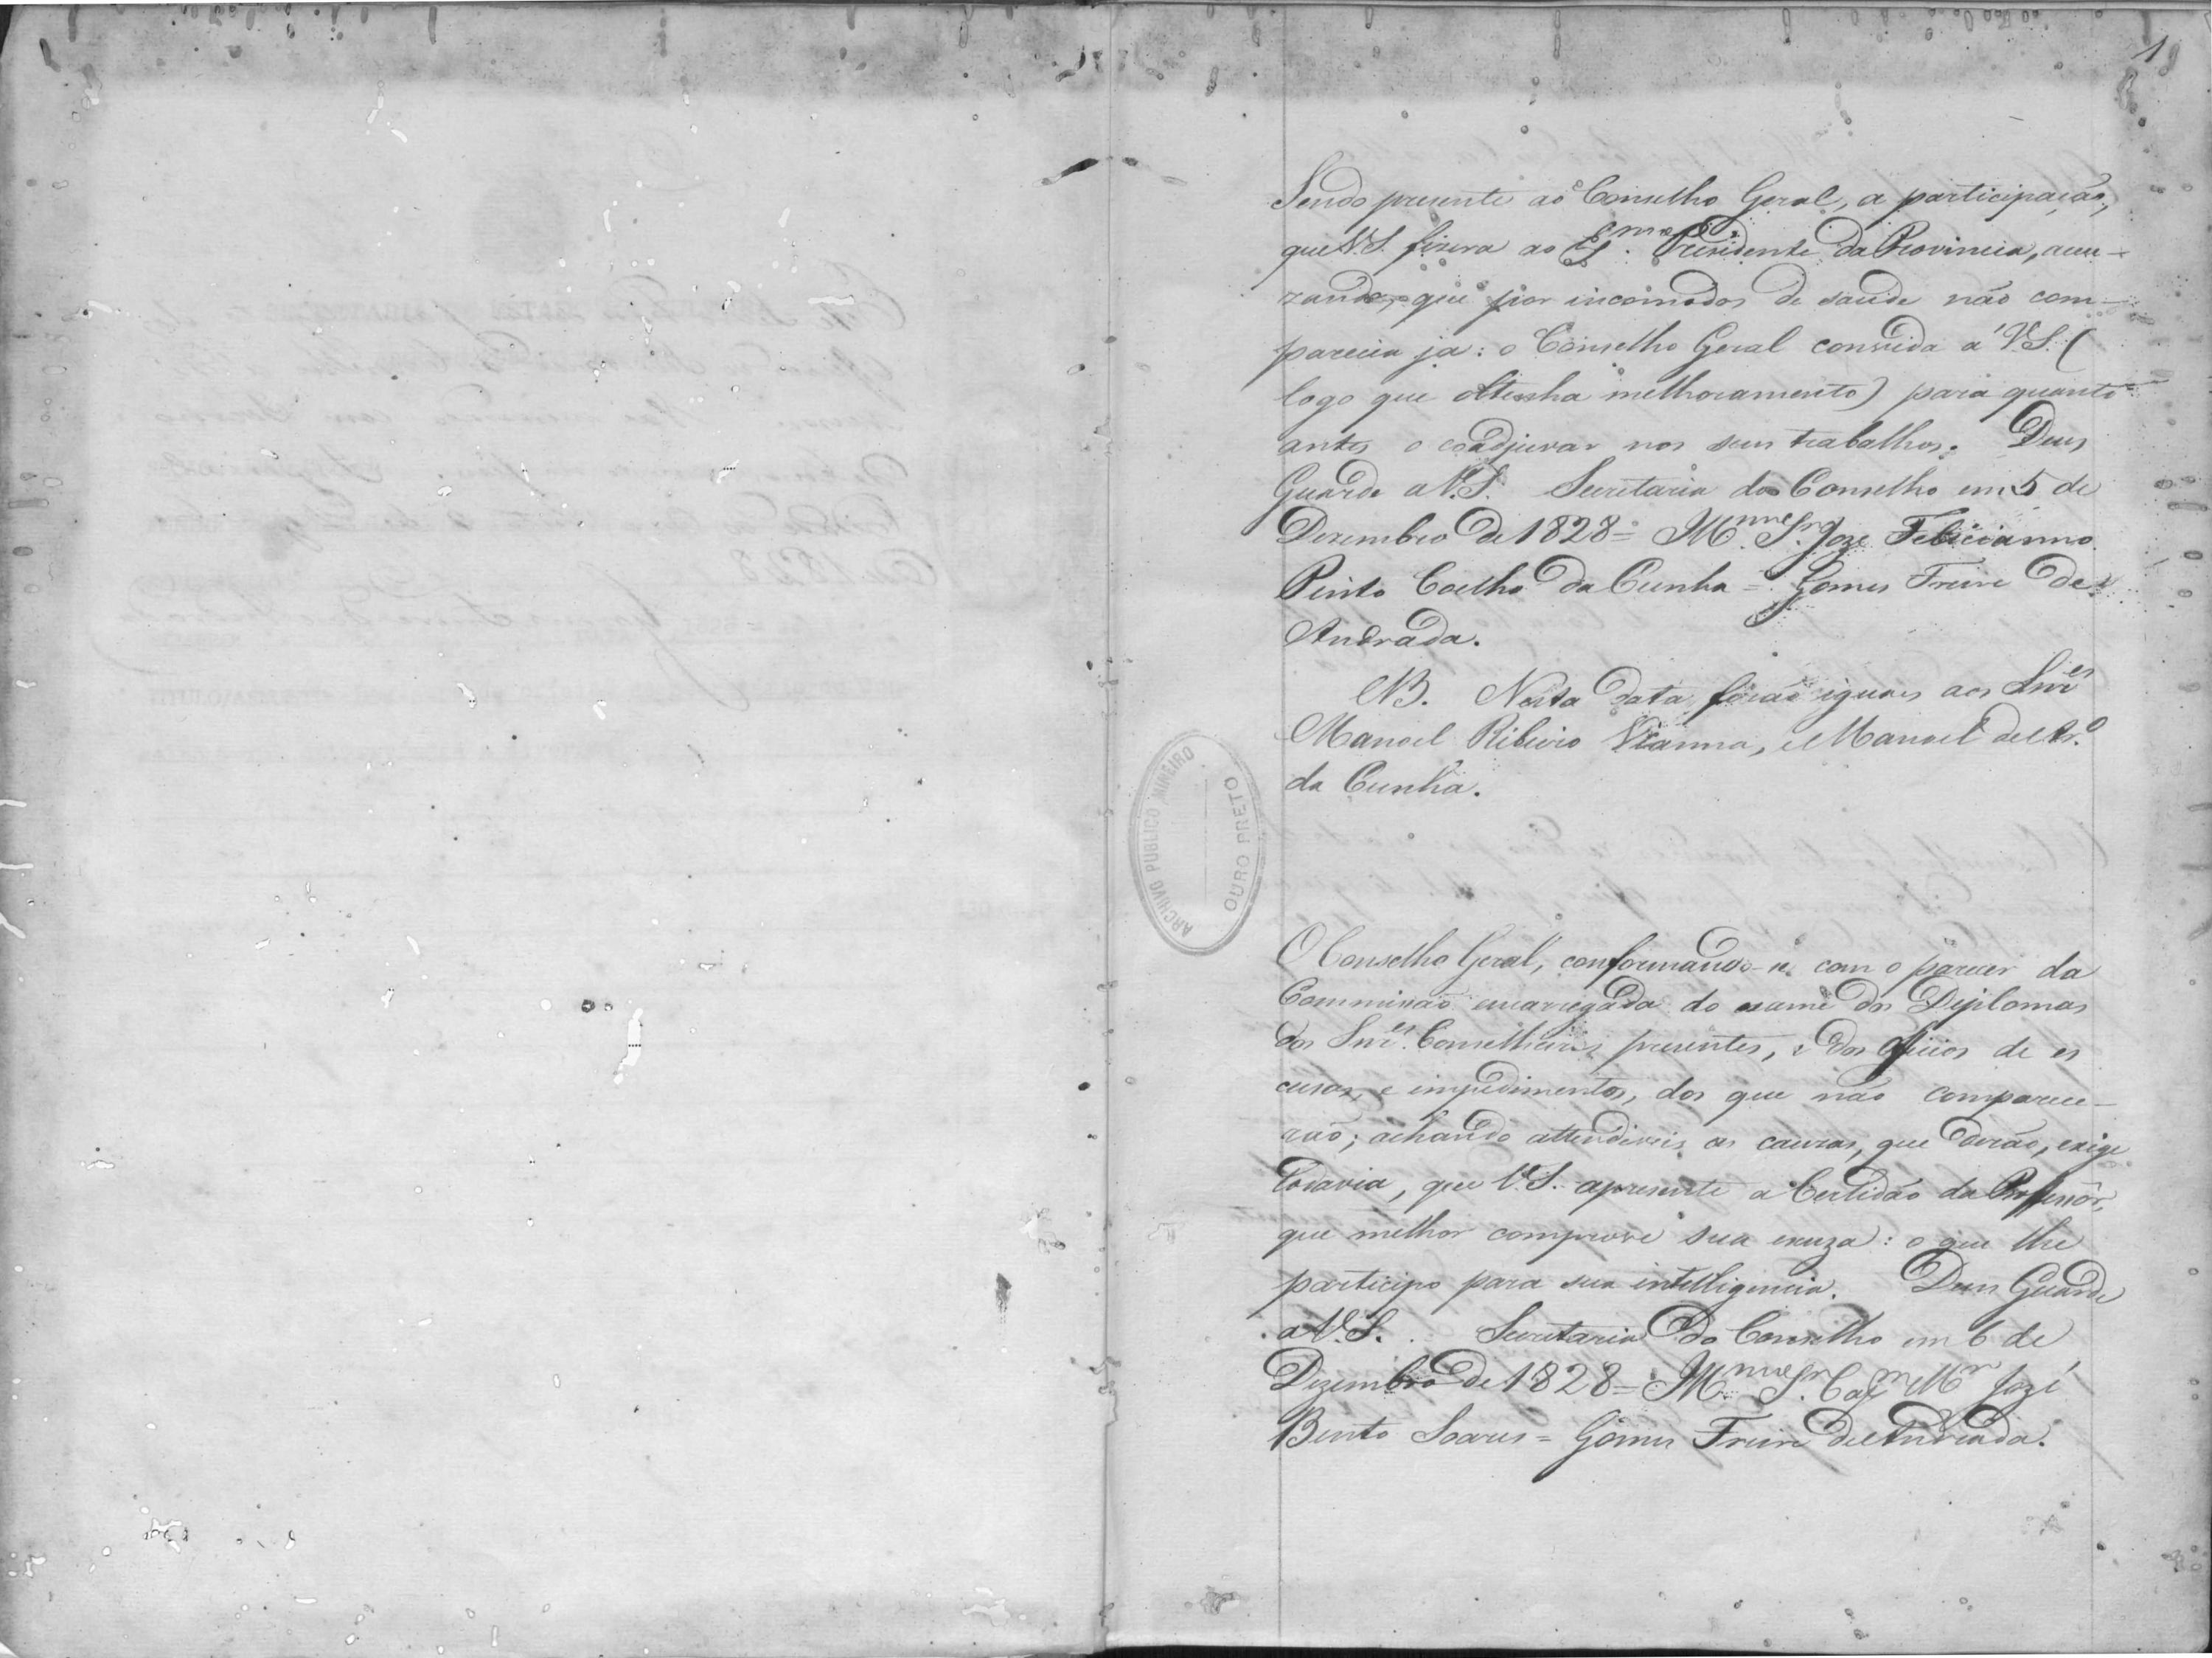 1
Sendo presente ao Conselho Geral, a participação,
que V.S. fizera ao Ex.mo Presidente da Provincia, accu-
zando, que por incomodos de saude não com-
parecia ja: o Conselho Geral convida a V.S. (
logo que obtenha melhoramento) para quanto
antes o coadjuvar nos seus trabalhos. Deus
Guarde a V.S. Secretaria do Conselho em 5 de
Dezembro de 1828 = Jozé Felicianno
Pinto Coelho da Cunha = Gomes Freire de
Andrada.
NB. Nesta data forão iguaes aos Snr.es
Manoel Ribeiro Vianna, e Manoel
da Cunha.
ARCHIVO PUBLICO MINEIRO
OURO PRETO
O Conselho Geral, conformando-se com o parecer da
Commissão encarregada do exame dos Diplomas
dos Snr.es Conselheiros presentes, e dos Officios de es
cusas, e impedimentos, dos que não comparece-
rão; achando attendiveis as causas, que derão, exige
todavia, que V.S. apresente a Certidão da Professôr,
que melhor comprove sua escuza: o que lhe
participo para sua intelligencia. Deus Guarde
a V.S. Secretaria do Conselho em 6 de
Dezembro de 1828 = Jozé
Bento Soares = Gomes Freire de Andrada.